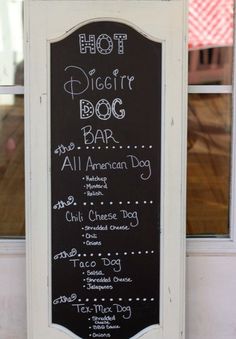 HOT
Diggity
DOG
BAR
the
All American Dog
• Ketchup
• Mustard
• Relish
the
Chili Cheese Dog
• Shredded Cheese
• Chili
• Onions
the
Taco Dog
• Salsa
• Shredded Cheese
• Jalapenos
the
Tex-Mex Dog
• Shredded
Cheese
• BBQ Sauce
• Onions